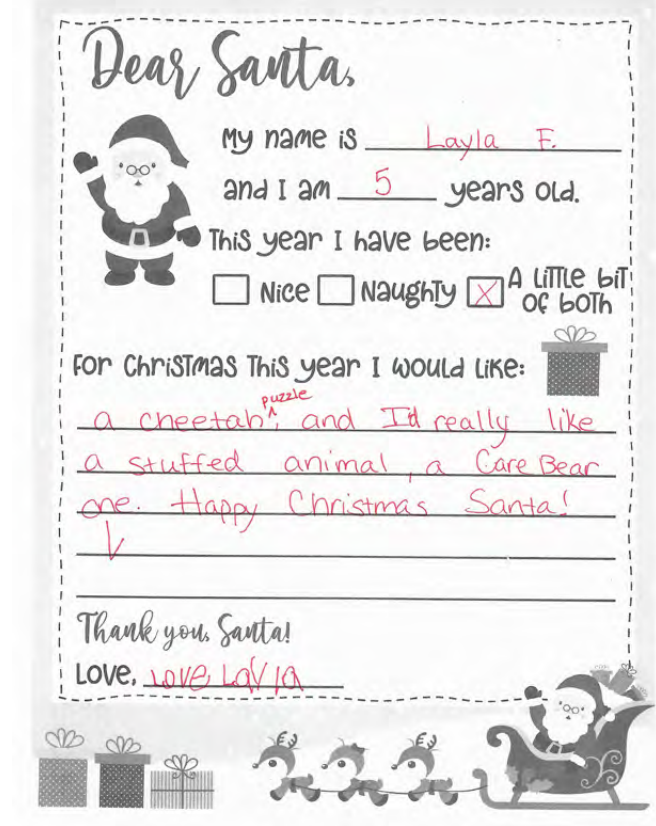 Dear Santa,
My name is Layla F.
and I am 5 years old.
This year I have been:
Nice Naughty X A little bit of both
For Christmas this year I would like:
a cheetah puzzle, and I'd really like
a stuffed animal, a Care Bear
one. Happy Christmas Santa!
Thank you, Santa!
Love, Love, Layla